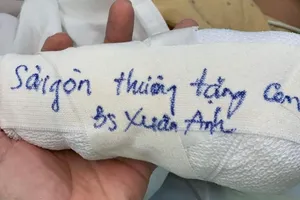 Sàigòn thương tặng con
Bs Xuân Anh